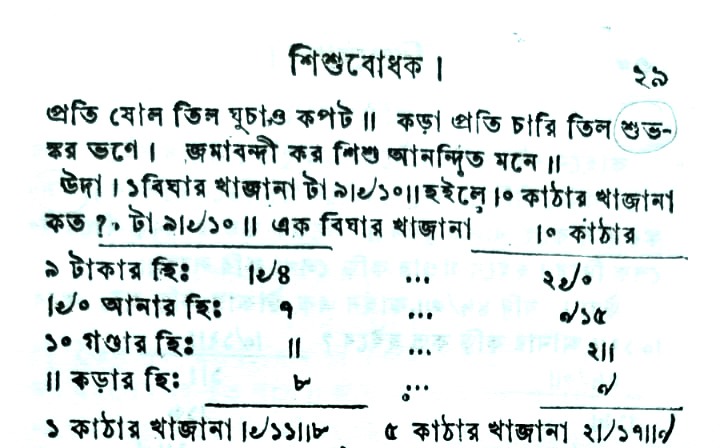 শিশুবোধক।
২৯
প্রতি ষোল তিল ঘুচাও কপট॥ কড়া প্রতি চারি তিল শুভ-
ঙ্কর ভণে। জমাবন্দী কর শিশু আনন্দিত মনে॥
উদা। ১বিঘার খাজানা টা ৯।৵১০॥ হইলে ।০ কাঠার খাজানা
কত? টা ৯।৵১০॥ এক বিঘার খাজানা ।০ কাঠার
৯ টাকার হিঃ ।৵৪ ... ২৵০
।৵০ আনার হিঃ ৭ ... ৴১৫
১০ গণ্ডার হিঃ ॥ ... ২॥
॥ কড়ার হিঃ ৮ ...
১ কাঠার খাজানা ।৵১১॥৮ ৫ কাঠার খাজানা